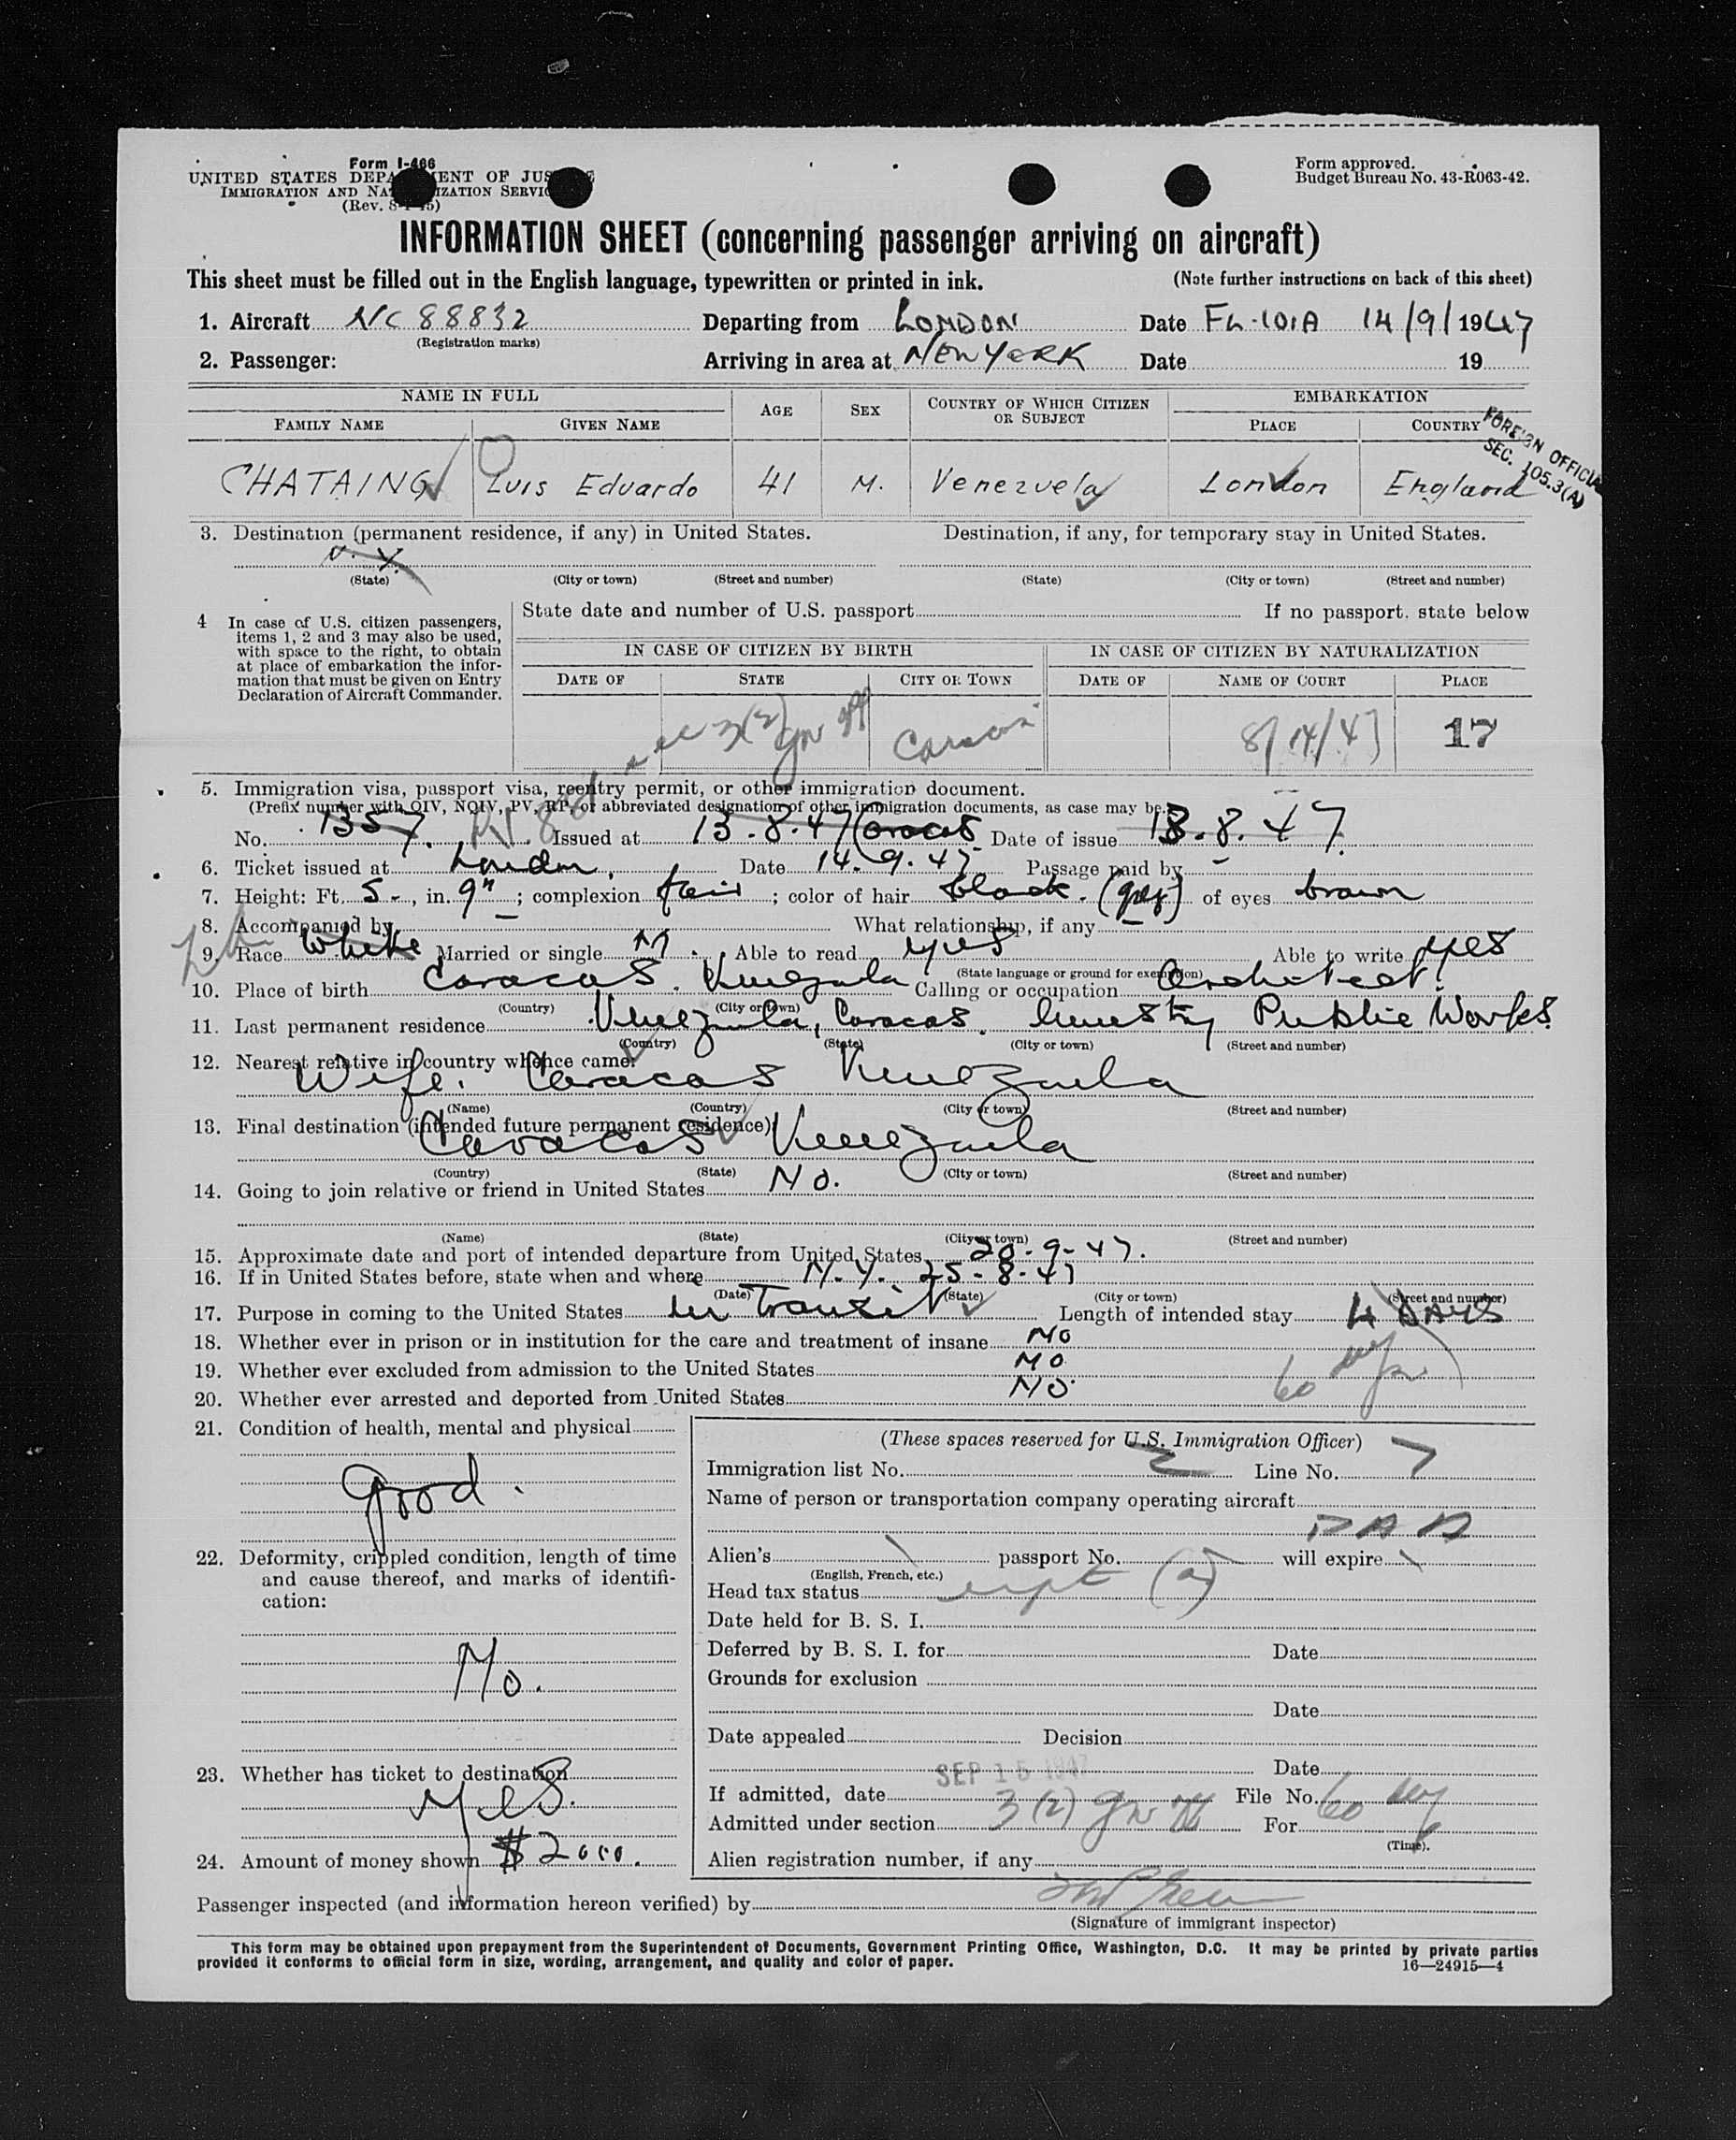 Form I-466
UNITED STATES DEPARTMENT OF JUSTICE
IMMIGRATION AND NATURALIZATION SERVICE
(Rev. 8-1-45)
Form approved.
Budget Bureau No. 43-R063-42.
INFORMATION SHEET (concerning passenger arriving on aircraft)
This sheet must be filled out in the English language, typewritten or printed in ink. (Note further instructions on back of this sheet)
1. Aircraft NC 88832 Departing from LONDON Date FL-101A 14/9/1947
(Registration marks)
2. Passenger: Arriving in area at NEW YORK Date 19
NAME IN FULL AGE SEX COUNTRY OF WHICH CITIZEN OR SUBJECT EMBARKATION
FAMILY NAME GIVEN NAME PLACE COUNTRY
FOREIGN OFFICIAL
SEC. 105.3(A)
CHATAING Luis Eduardo 41 M. Venezuela London England
3. Destination (permanent residence, if any) in United States. Destination, if any, for temporary stay in United States.
N. Y.
(State) (City or town) (Street and number) (State) (City or town) (Street and number)
4 In case of U.S. citizen passengers, items 1, 2 and 3 may also be used, with space to the right, to obtain at place of embarkation the information that must be given on Entry Declaration of Aircraft Commander.
State date and number of U.S. passport If no passport, state below
IN CASE OF CITIZEN BY BIRTH IN CASE OF CITIZEN BY NATURALIZATION
DATE OF STATE CITY OR TOWN DATE OF NAME OF COURT PLACE
3(2) Gov off Caracas 8/14/47 17
5. Immigration visa, passport visa, reentry permit, or other immigration document.
(Prefix number with QIV, NQIV, PV, RP, or abbreviated designation of other immigration documents, as case may be.)
No. 1357. PV Issued at 13.8.47 Caracas Date of issue 13.8.47.
6. Ticket issued at London. Date 14.9.47 Passage paid by –
7. Height: Ft. 5-, in. 9"; complexion fair; color of hair black. (grey) of eyes brown
8. Accompanied by – What relationship, if any –
9. Race White Married or single M. Able to read yes Able to write yes
(State language or ground for exemption)
10. Place of birth Caracas. Venezuela Calling or occupation Architect.
(Country) (City or town)
11. Last permanent residence Venezuela, Caracas. Ministry Public Works.
(Country) (State) (City or town) (Street and number)
12. Nearest relative in country whence came:
Wife. Caracas Venezuela
(Name) (Country) (City or town) (Street and number)
13. Final destination (intended future permanent residence):
Caracas Venezuela
(Country) (State) (City or town) (Street and number)
14. Going to join relative or friend in United States No.
(Name) (State) (City or town) (Street and number)
15. Approximate date and port of intended departure from United States 20-9-47.
16. If in United States before, state when and where N.Y. 25-8-47
(Date) (State) (City or town) (Street and number)
17. Purpose in coming to the United States in Transit Length of intended stay 4 DAYS
18. Whether ever in prison or in institution for the care and treatment of insane NO
19. Whether ever excluded from admission to the United States NO
20. Whether ever arrested and deported from United States NO.
60
21. Condition of health, mental and physical
Good.
22. Deformity, crippled condition, length of time and cause thereof, and marks of identification:
No.
23. Whether has ticket to destination
Yes.
24. Amount of money shown $2000.
(These spaces reserved for U.S. Immigration Officer)
Immigration list No. 2 Line No. 7
Name of person or transportation company operating aircraft
PAA
Alien's passport No. will expire
(English, French, etc.)
Head tax status expt (a)
Date held for B. S. I.
Deferred by B. S. I. for Date
Grounds for exclusion
Date
Date appealed Decision
SEP 15 1947 Date
If admitted, date File No.
Admitted under section 3(2) Gov off For 60 day
(Time).
Alien registration number, if any
Passenger inspected (and information hereon verified) by
(Signature of immigrant inspector)
This form may be obtained upon prepayment from the Superintendent of Documents, Government Printing Office, Washington, D.C. It may be printed by private parties
provided it conforms to official form in size, wording, arrangement, and quality and color of paper. 16—24915—4